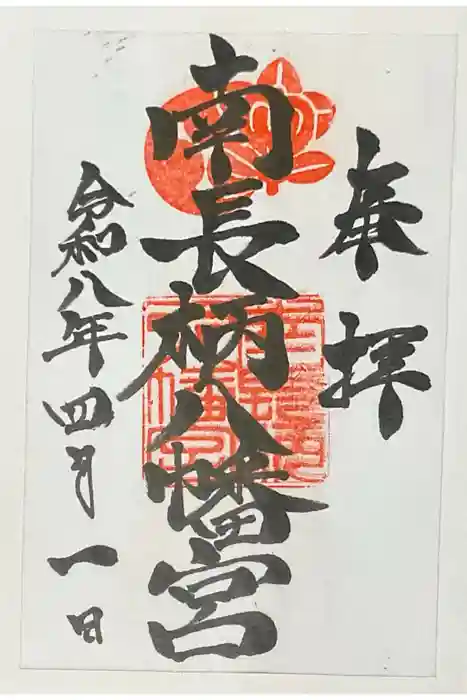 奉拝
南長柄八幡宮
令和八年四月一日